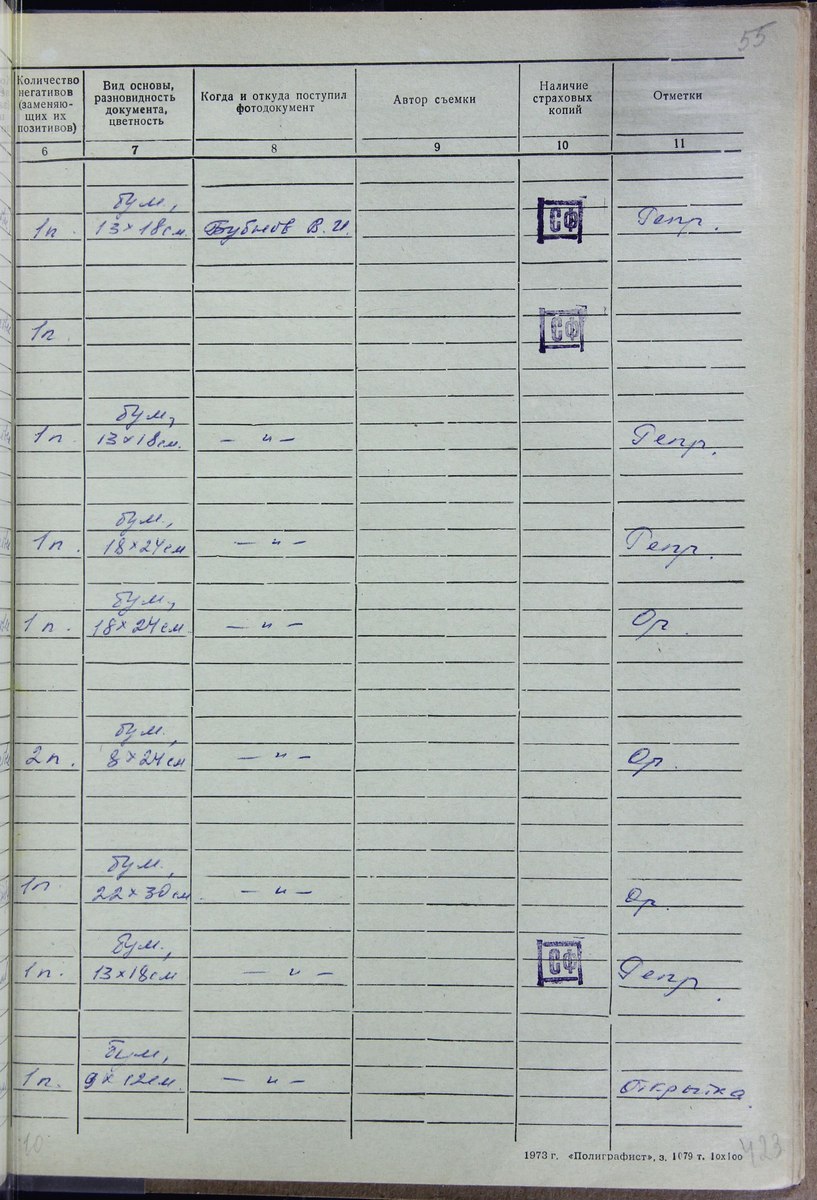 55
Количество негативов (заменяю- щих их позитивов)
Вид основы, разновидность документа, цветность
Когда и откуда поступил фотодокумент
Автор съемки
Наличие страховых копий
Отметки
6 7 8 9 10 11
бум.,
1п. 13×18см. Бубнов В.И. СФ Репр.
1п. СФ
бум.,
1п. 13×18см. — „ — Репр.
бум.,
1п. 18×24см — „ — Репр.
бум.,
1п. 18×24см. — „ — Ор.
бум.,
2п. 8×24см — „ — Ор.
бум.,
1п. 22×30см. — „ — Ор.
бум.,
1п. 13×18см — „ — СФ Репр.
бум.,
1п. 9×12см. — „ — Открытка.
10
1973 г. «Полиграфист», з. 1079 т. 10х100
423